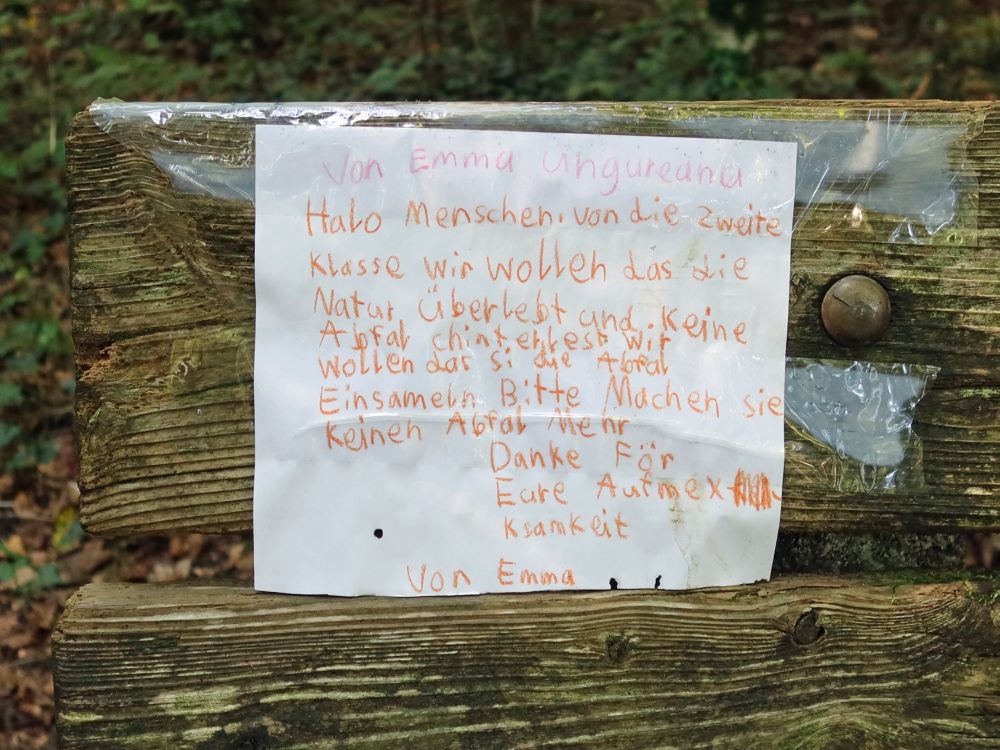 Von Emma Ungureanu
Halo Menschen, von die Zweite
Klasse wir wollen das die
Natur Überlebt und Keine
Abfal chinterlest wir
wollen das si die Abfal
Einsameln Bitte Machen sie
Keinen Abfal Mehr
Danke För
Eure Aufmex
Ksamkeit
Von Emma